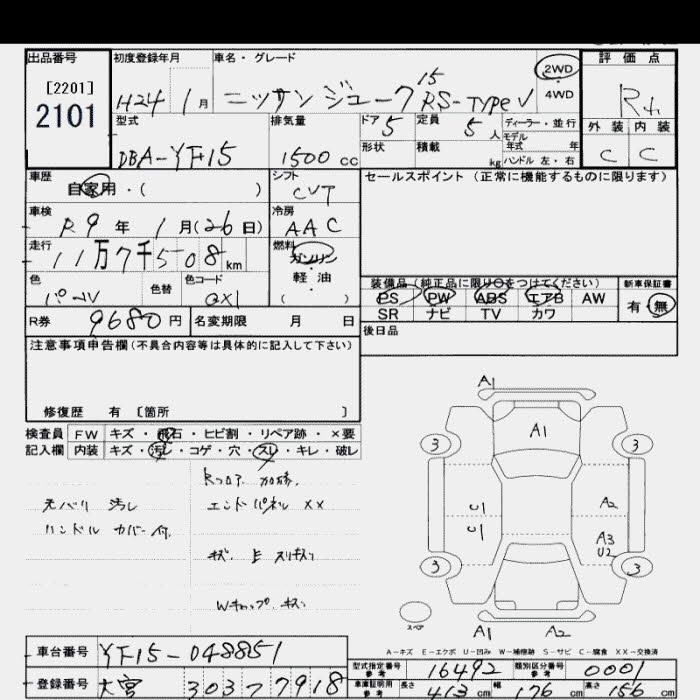 出品番号
[2201]
2101
初度登録年月
H24 1月
車名・グレード
ニッサン ジューク 15 RS-TYPE V
2WD
4WD
評価点
外装 内装
C C
型式
DBA-YF15
排気量
1500 cc
ドア 5
定員 5 人
形状
積載 kg
ディーラー・並行
モデル年式 年
ハンドル 左・右
車歴
自家用・( )
シフト
CVT
セールスポイント(正常に機能するものに限ります)
車検
R9 年 1月(26日)
冷房
AAC
走行
11万7千508 km
燃料
ガソリン
軽油
( )
色
パール
色替
色コード
QX1
装備品(純正品に限り○をつけてください)
PS PW ABS エアB AW
SR ナビ TV カワ
新車保証書
有・無
R券 9680 円
名変期限 月 日
後日品
注意事項申告欄(不具合内容等は具体的に記入して下さい)
修復歴 有 [箇所 ]
検査員 FW キズ・飛石・ヒビ割・リペア跡・×要
記入欄 内装 キズ・汚レ・コゲ・穴・スレ・キレ・破レ
汚レ
エンドパネル XX
ハンドル カバー付
Wキャップ キズ
A1
A1
3 3
U1
U1
A2
A3
U2
3 3
スペア
A1 A2
A-キズ E-エクボ U-凹み W-補修跡 S-サビ C-腐食 XX-交換済
車台番号 YF15-048851
登録番号 大宮 303 フ 7918
型式指定番号 参考 16492
類別区分番号 参考 0001
車庫証明用 参考 長さ 413 cm 幅 176 cm 高さ 156 cm